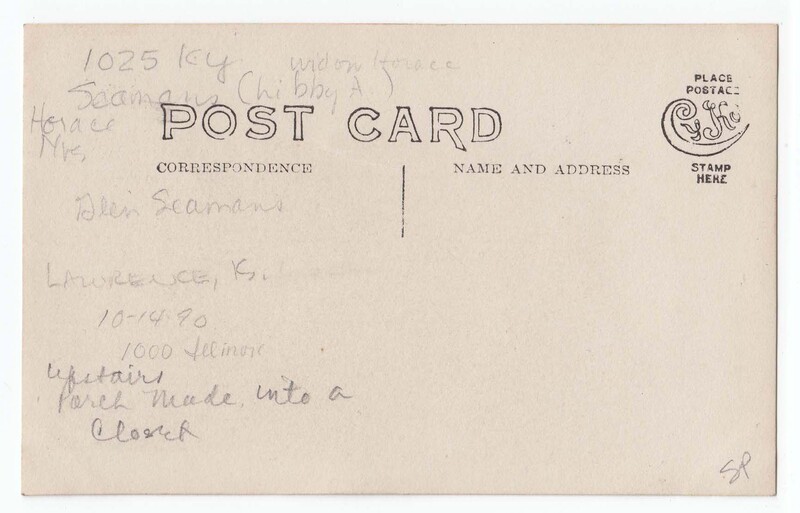 1025 Ky widow Horace
Seamans (Libby A.)
Horace
Mrs.
POST CARD
CORRESPONDENCE
NAME AND ADDRESS
PLACE
POSTAGE
CYKO
STAMP
HERE
Glen Seamans
LAWRENCE, Ks.
10-14-90
1000 Illinois
upstairs
Porch made into a
Closet